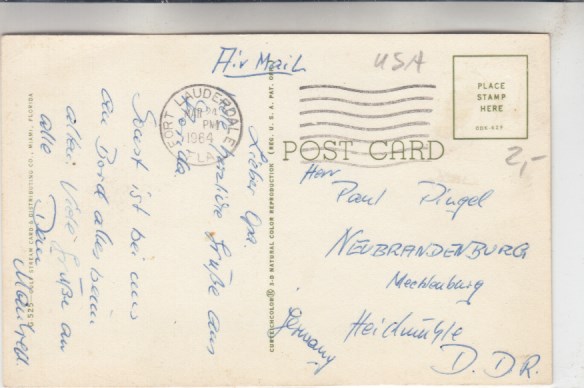 Air Mail
USA
PLACE
STAMP
HERE
FORT LAUDERDALE
PM
1964
FLA
POST CARD
2,-
Lieber Opa.
herzliche Grüße aus
Florida
Sonst ist bei uns
an Bord alles beim
alten Viele Grüße an
alle Dein
Manfred.
Herr
Paul Pingel
NEUBRANDENBURG
Mecklenburg
Heidmühle
D.D.R.
Germany
CURTEICHCOLOR® 3-D NATURAL COLOR REPRODUCTION (REG. U. S. A. PAT. OFF.)
DISTRIBUTING CO., MIAMI, FLORIDA